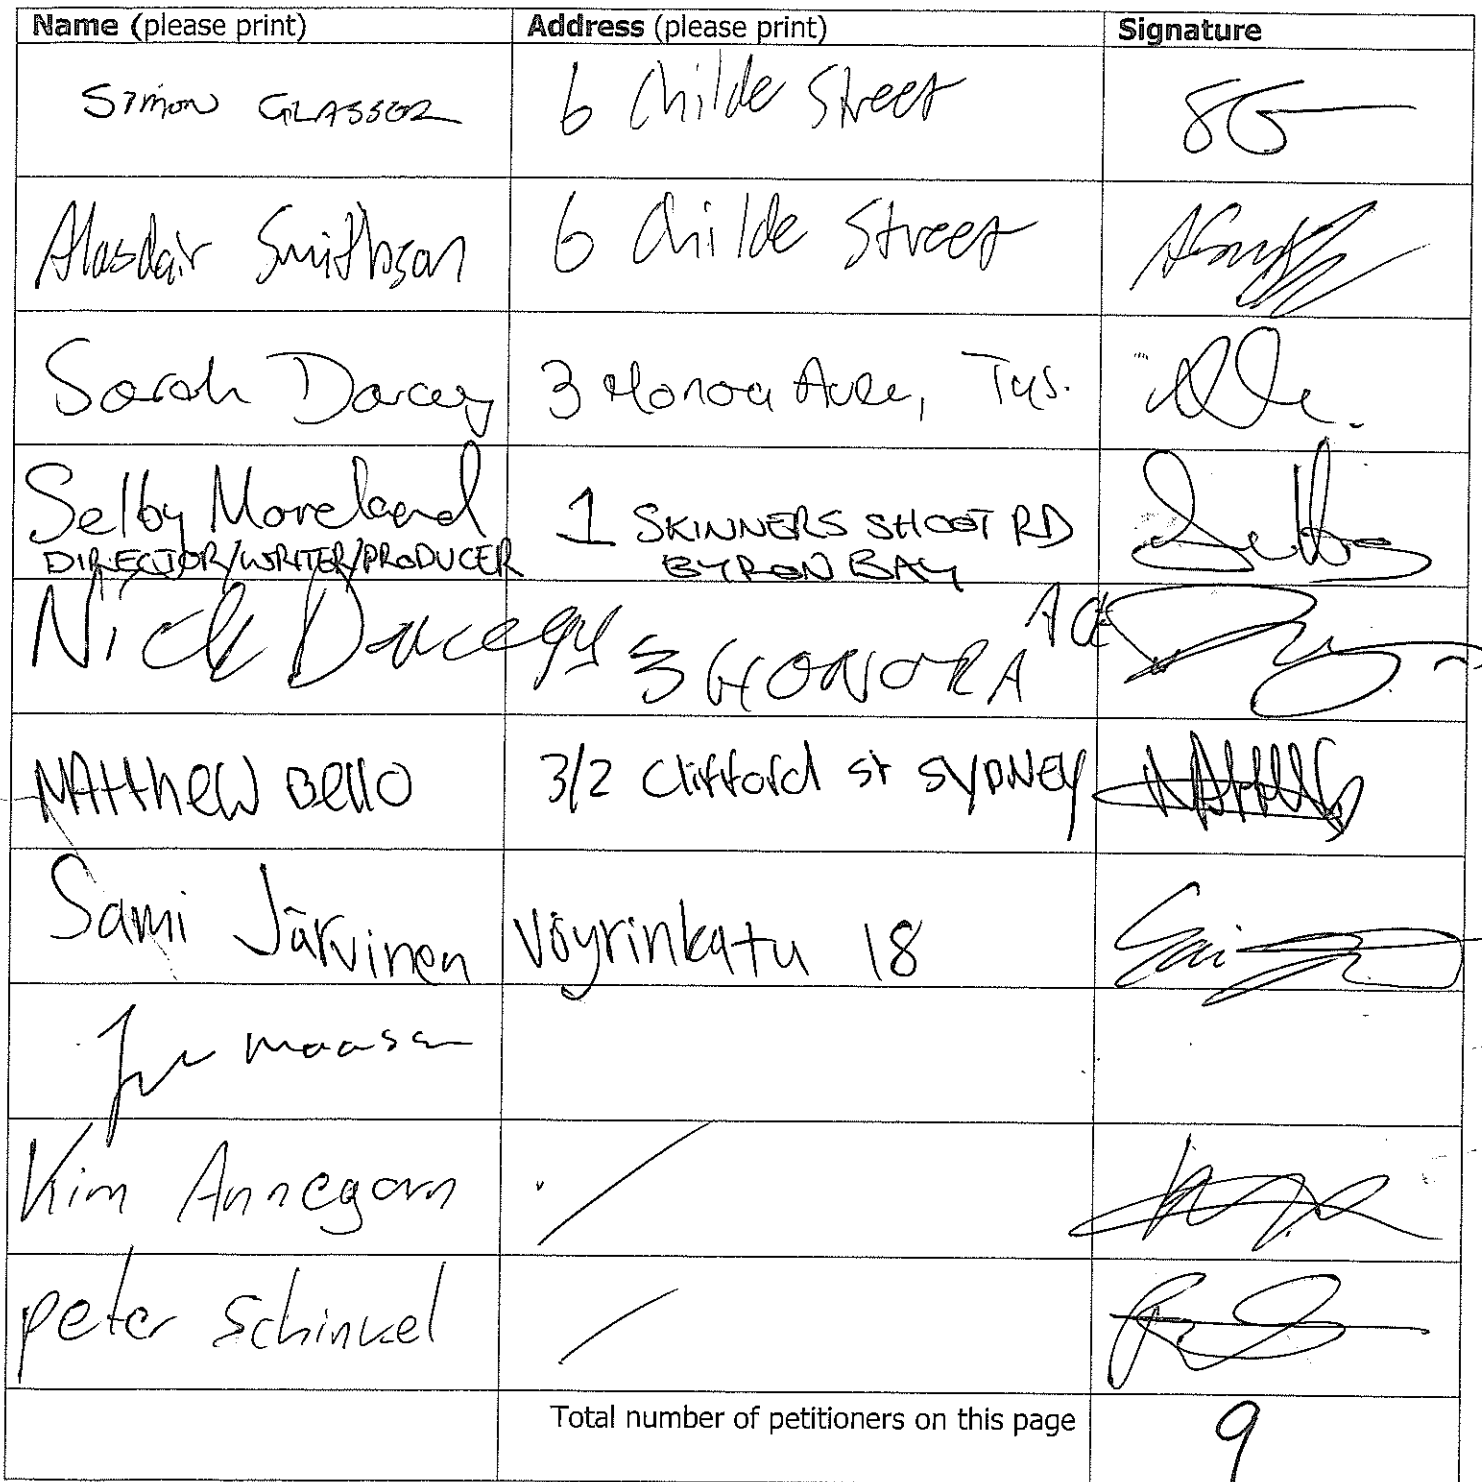 Name (please print) Address (please print) Signature
SIMON GLASSER 6 Childe Street SG
Alasdair Smithson 6 Childe Street
Sarah Darcey 3 Honora Ave,
Selby Moreland 1 SKINNERS SHOOT RD Selby
DIRECTOR/WRITER/PRODUCER BYRON BAY
Nick Darcey 3 HONORA
MAtthew Bello 3/2 Clifford St SYDNEY
Sami Järvinen Vöyrinkatu 18
Kim Annegarn
peter Schinkel
Total number of petitioners on this page 9